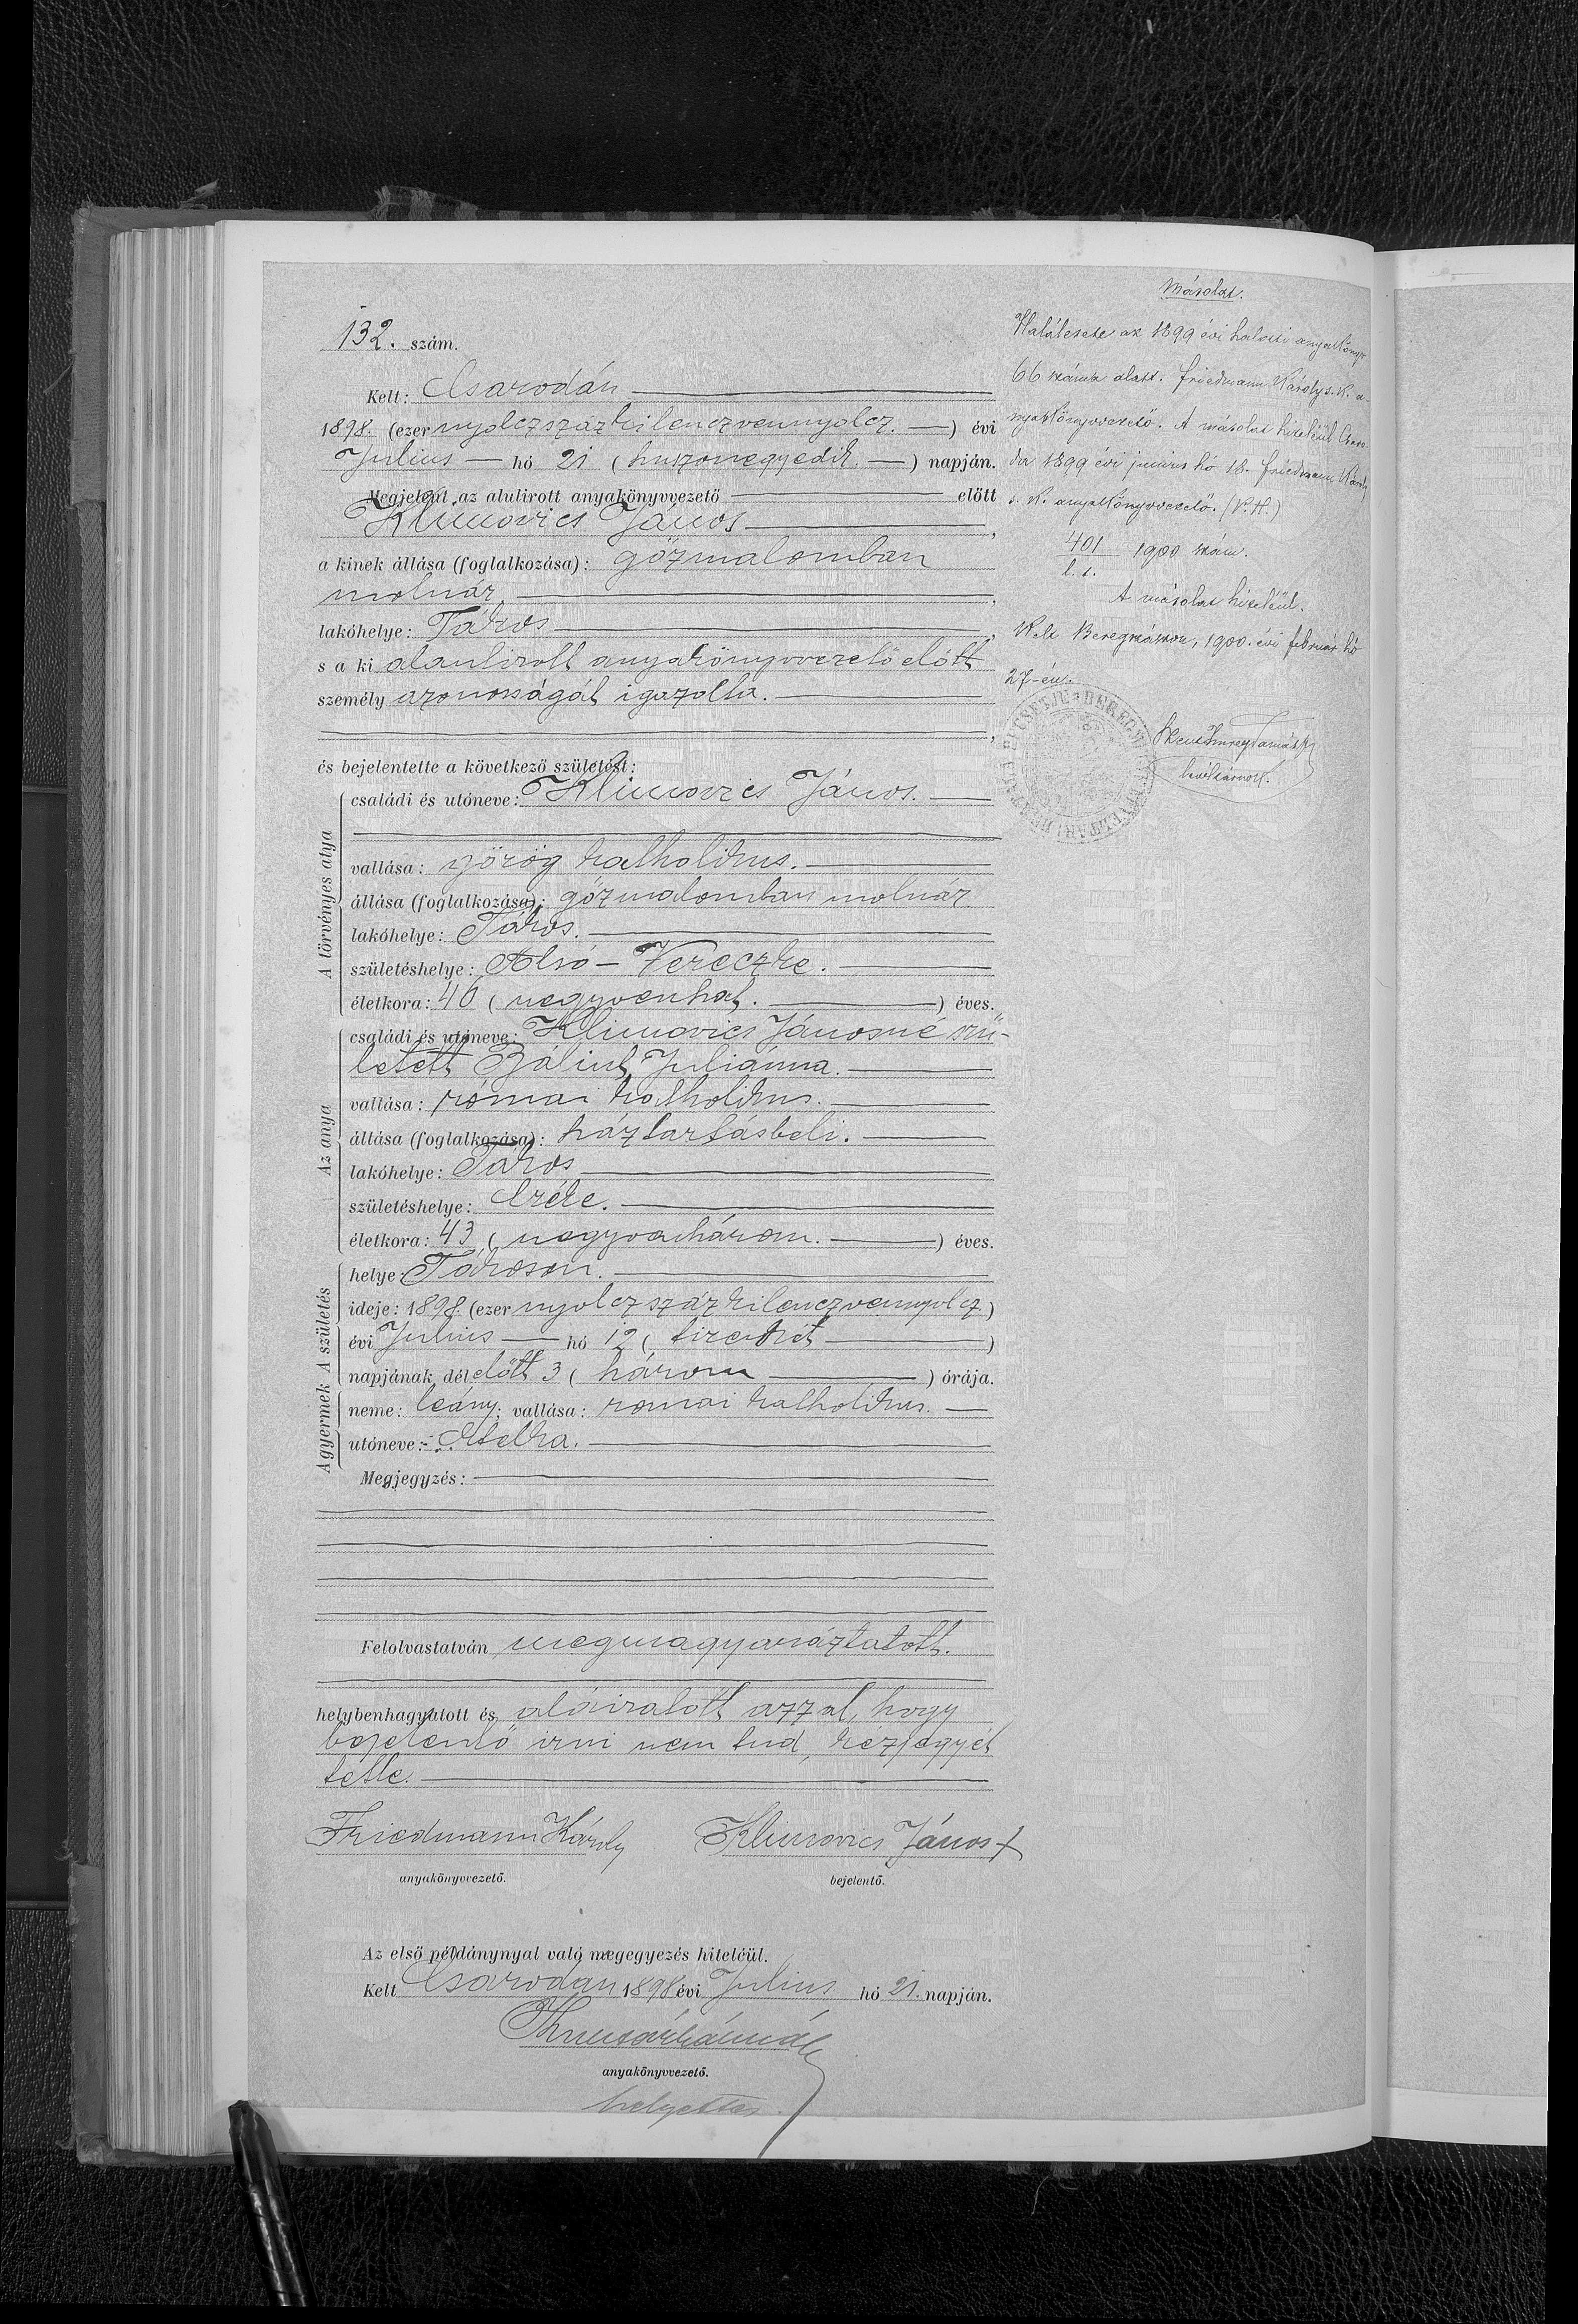 132. szám.
Kelt: Csarodán
1898. (ezer nyolczszázkilenczvennyolcz. ) évi
Julius hó 21 ( huszonegyedik. ) napján.
Megjelent az alulirott anyakönyvvezető előtt
Klimovics János ,
a kinek állása (foglalkozása): gőzmalomban
molnár ,
lakóhelye: Tákos ,
s a ki alantirott anyakönyvvezető előtt
személy azonosságát igazolta.
és bejelentette a következő születést:
A törvényes atya
családi és utóneve: Klimovics János.
vallása: görög katholikus.
állása (foglalkozása): gőzmalomban molnár
lakóhelye: Tákos.
születéshelye: Alsó-Vereczke.
életkora: 46 ( negyvenhat. ) éves.
Az anya
családi és utóneve: Klimovics Jánosné szü-
letett Bálint Juliánna.
vallása: római katholikus.
állása (foglalkozása): háztartásbeli.
lakóhelye: Tákos
születéshelye:
életkora: 43 ( negyvenhárom. ) éves.
A születés
helye: Tákoson.
ideje: 1898. (ezer nyolczszázkilenczvennyolcz )
évi Julius hó 12 ( tizenkét )
napjának délelőtt 3 ( három ) órája.
A gyermek
neme: leány; vallása: romai katholikus.
utóneve:
Megjegyzés:
Felolvastatván megmagyaráztatott.
helybenhagyatott és aláiratott azzal, hogy
bejelentő irni nem tud, kézjegyét
tette.
Friedmann Károly Klimovics János +
anyakönyvvezető. bejelentő.
Az első példánynyal való megegyezés hiteléül.
Kelt Csarodán 1898 évi Julius hó 21. napján.
anyakönyvvezető.
helyettes
Másolat.
Halálesete az 1899 évi halotti anyakönyv
66 száma alatt. Friedmann Károly s. k. a-
nyakönyvvezető. A másolat hiteléül Csaro-
da 1899 évi junius hó 18. Friedmann Károly
s. k. anyakönyvvezető. (P. H.)
401 1900 szám.
A másolat hiteléül.
Kelt Beregszászon, 1900. évi február hó
27-én.